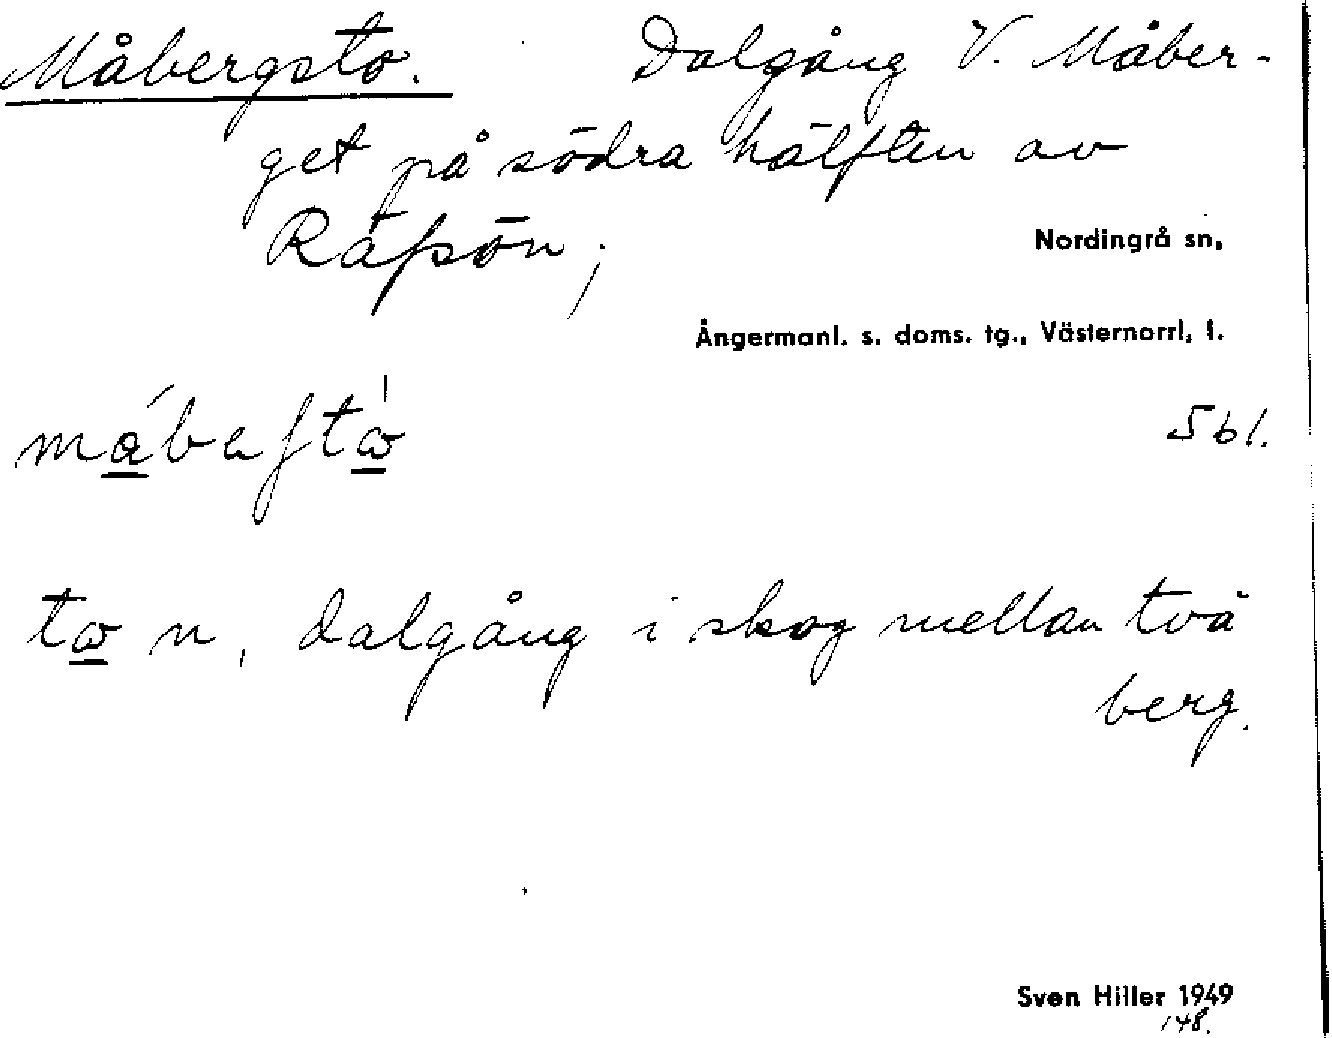 Måbergsto. Dalgång V. Måber-
get på södra hälften av
Råpsön;
Nordingrå sn,
Ångermanl. s. doms. tg., Västernorrl, l.
5bl.
to n, dalgång i skog mellan två
berg.
Sven Hiller 1949
148.